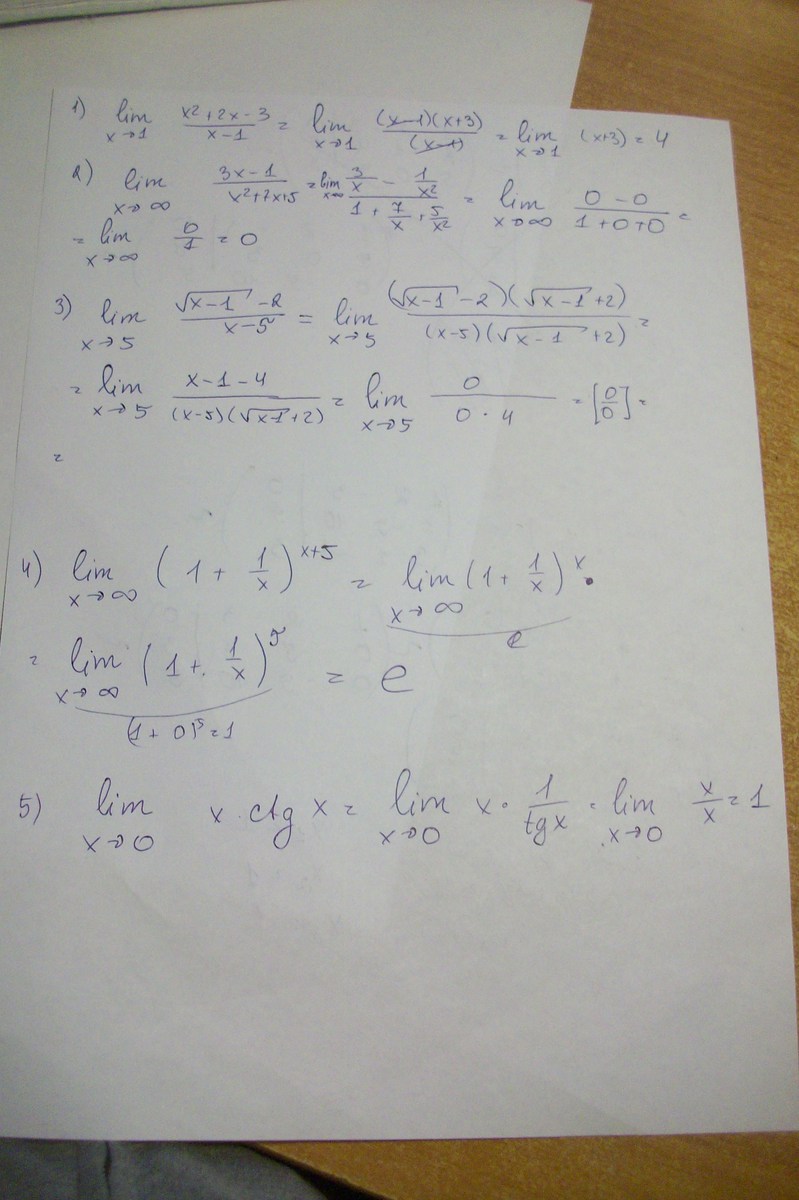 1) lim x→1 (x²+2x-3)/(x-1) = lim x→1 ((x-1)(x+3))/((x-1)) = lim x→1 (x+3) = 4
2) lim x→∞ (3x-1)/(x²+7x+5) = lim x→∞ (3/x - 1/x²)/(1 + 7/x + 5/x²) = lim x→∞ (0-0)/(1+0+0) =
= lim x→∞ 0/1 = 0
3) lim x→5 (√(x-1) - 2)/(x-5) = lim x→5 ((√(x-1) - 2)(√(x-1) + 2))/((x-5)(√(x-1) + 2)) =
= lim x→5 (x-1-4)/((x-5)(√(x-1) + 2)) = lim x→5 0/(0·4) = [0/0] =
=
4) lim x→∞ (1 + 1/x)^(x+5) = lim x→∞ (1 + 1/x)^x · e
= lim x→∞ (1 + 1/x)^5 = e
(1+0)⁵ = 1
5) lim x→0 x·ctg x = lim x→0 x · 1/tgx = lim x→0 x/x = 1